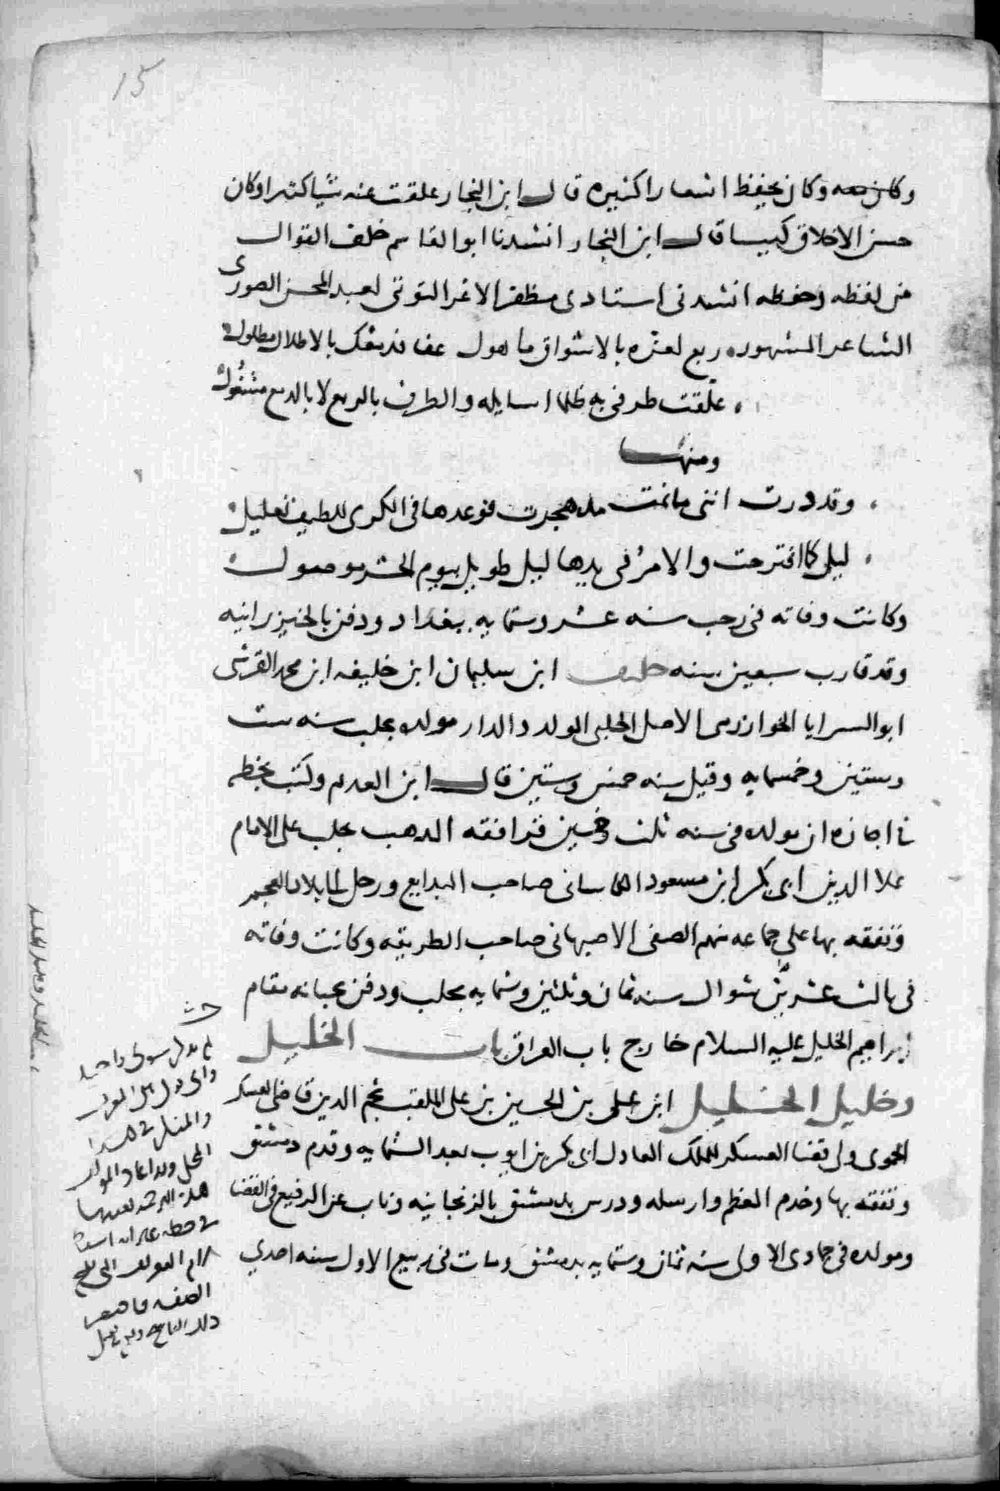 15
وكان معه وكان يحفظ اشعارا كثيره قال ابن النجار علقت عنه شيا كثيرا وكان
حسن الاخلاق كيسا قال ابن النجار انشدنا ابوالقاسم خلف القوال
من لفظه وحفظه انشدنى استادى مظفر الاغر التوتى لعبد المحسن الصورى
الشاعر المشهور ربع لعزه بالاشواق ماهول عفا فدمعك بالاطلال مطلول
علقت طرفى به ظلما اسايله والطرف بالدمع لا بالربع مشغول
ومنها
وقد درت اننى ما نمت مذ هجرت فوعدها فى الكرى للطيف تعليل
ليلى كما اقترحت والامر فى يدها ليل طويل بيوم الحشر موصول
وكانت وفاته فى رجب سنه عشر وستمايه ببغداد ودفن بالخيزرانيه
وقد قارب سبعين سنه خليفه ابن سليمان ابن خليفه ابن محمد القرشى
ابوالسرايا الخوارزمى الاصل الحلبى المولد والدار مولده بحلب سنه ست
وستين وخمسمايه وقيل سنه خمس وستين قال ابن العديم وكتب بخطه
فى اجازه ان مولده فى سنه ثلث وخمسين قرا فقه المذهب بحلب على الامام
علا الدين ابى بكر ابن مسعود الكاسانى صاحب البدايع ورحل الى بلاد العجم
وتفقه بها على جماعه منهم الصفى الاصبهانى صاحب الطريقه وكانت وفاته
فى ثالث عشرين شوال سنه ثمان وثلثين وستمايه بحلب ودفن بجبانه مقام
ابراهيم الخليل عليه السلام خارج باب العراق باب الخليل
وخليل الخليل ابن على بن الحسين بن على الملقب نجم الدين قاضى العسكر
الحموى ولى قضا العسكر للملك العادل ابى بكر بن ايوب بعد الستمايه وقدم دمشق
وتفقه بها وخدم المعظم وارسله ودرس بدمشق بالزنجانيه وناب عن الرفيع فى القضا
ومولده فى جمادى الاولى سنه ثمان وستمايه بدمشق ومات فى ربيع الاول سنه احدى